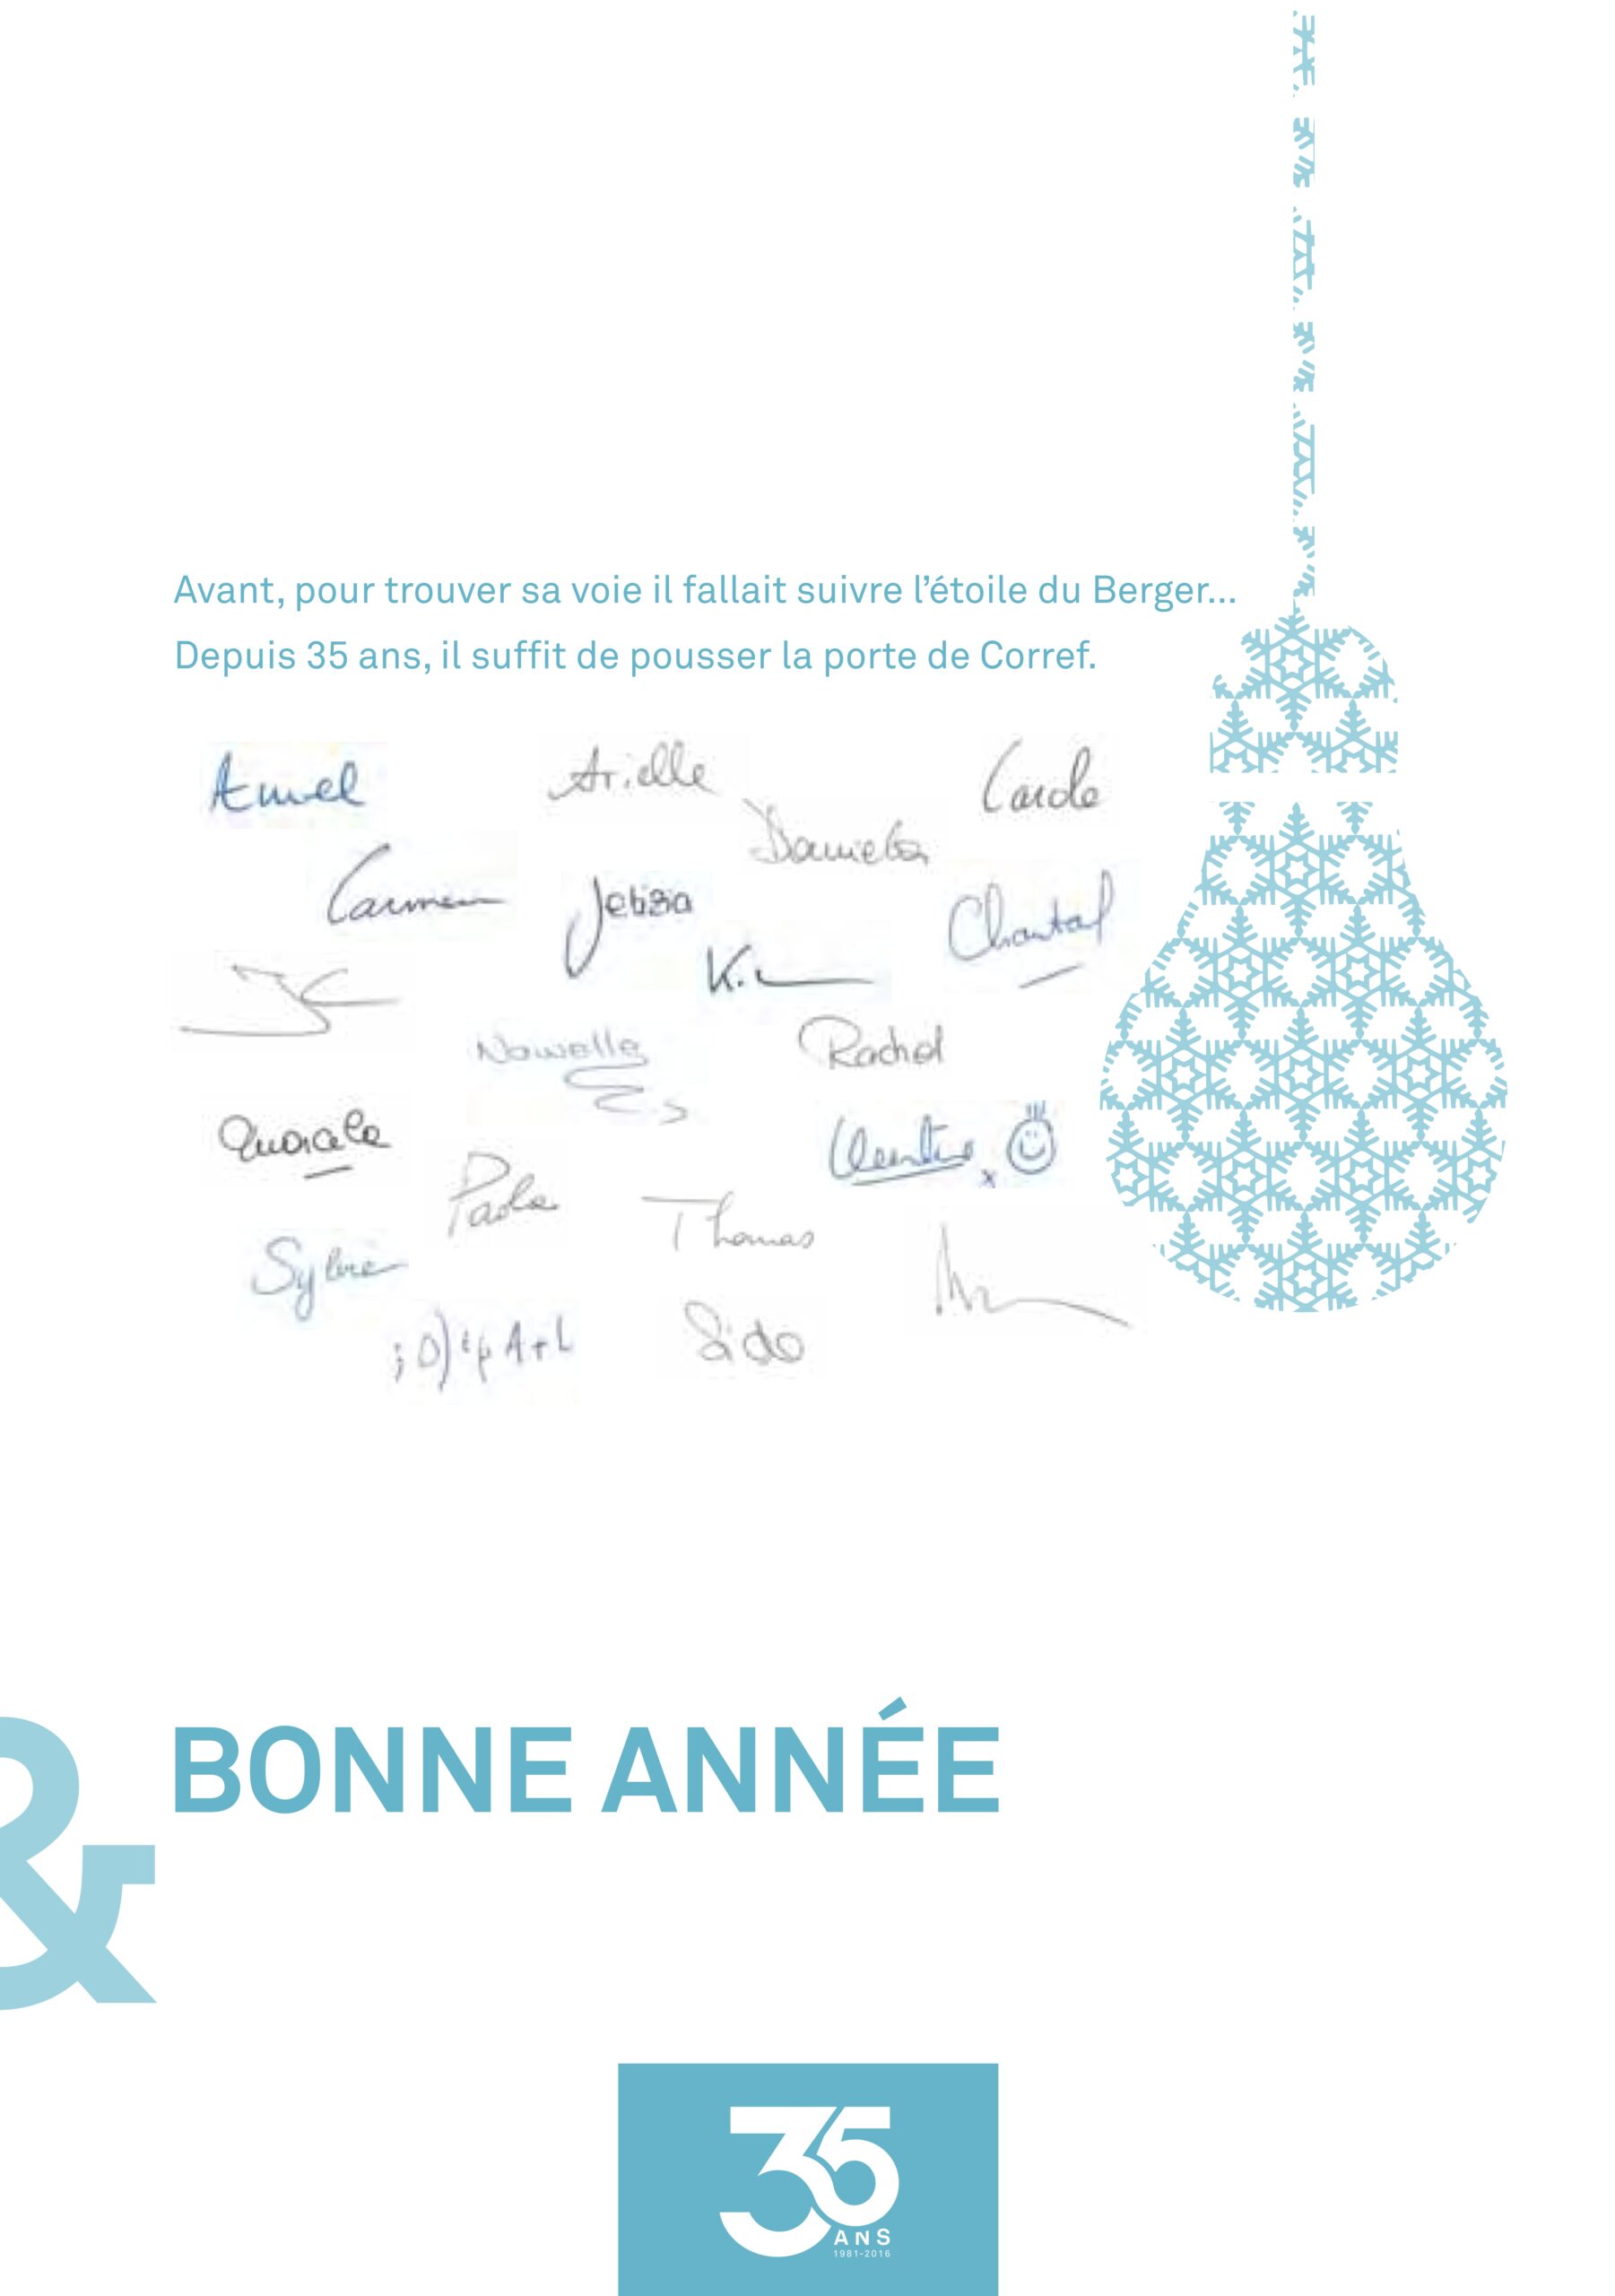 Avant, pour trouver sa voie il fallait suivre l'étoile du Berger...
Depuis 35 ans, il suffit de pousser la porte de Corref.
Arielle
Carole
Daniela
Carmen
Chantal
Rachel
Paola
Thomas
Sylvie
Sido
&
BONNE ANNÉE
35
ANS
1981-2016